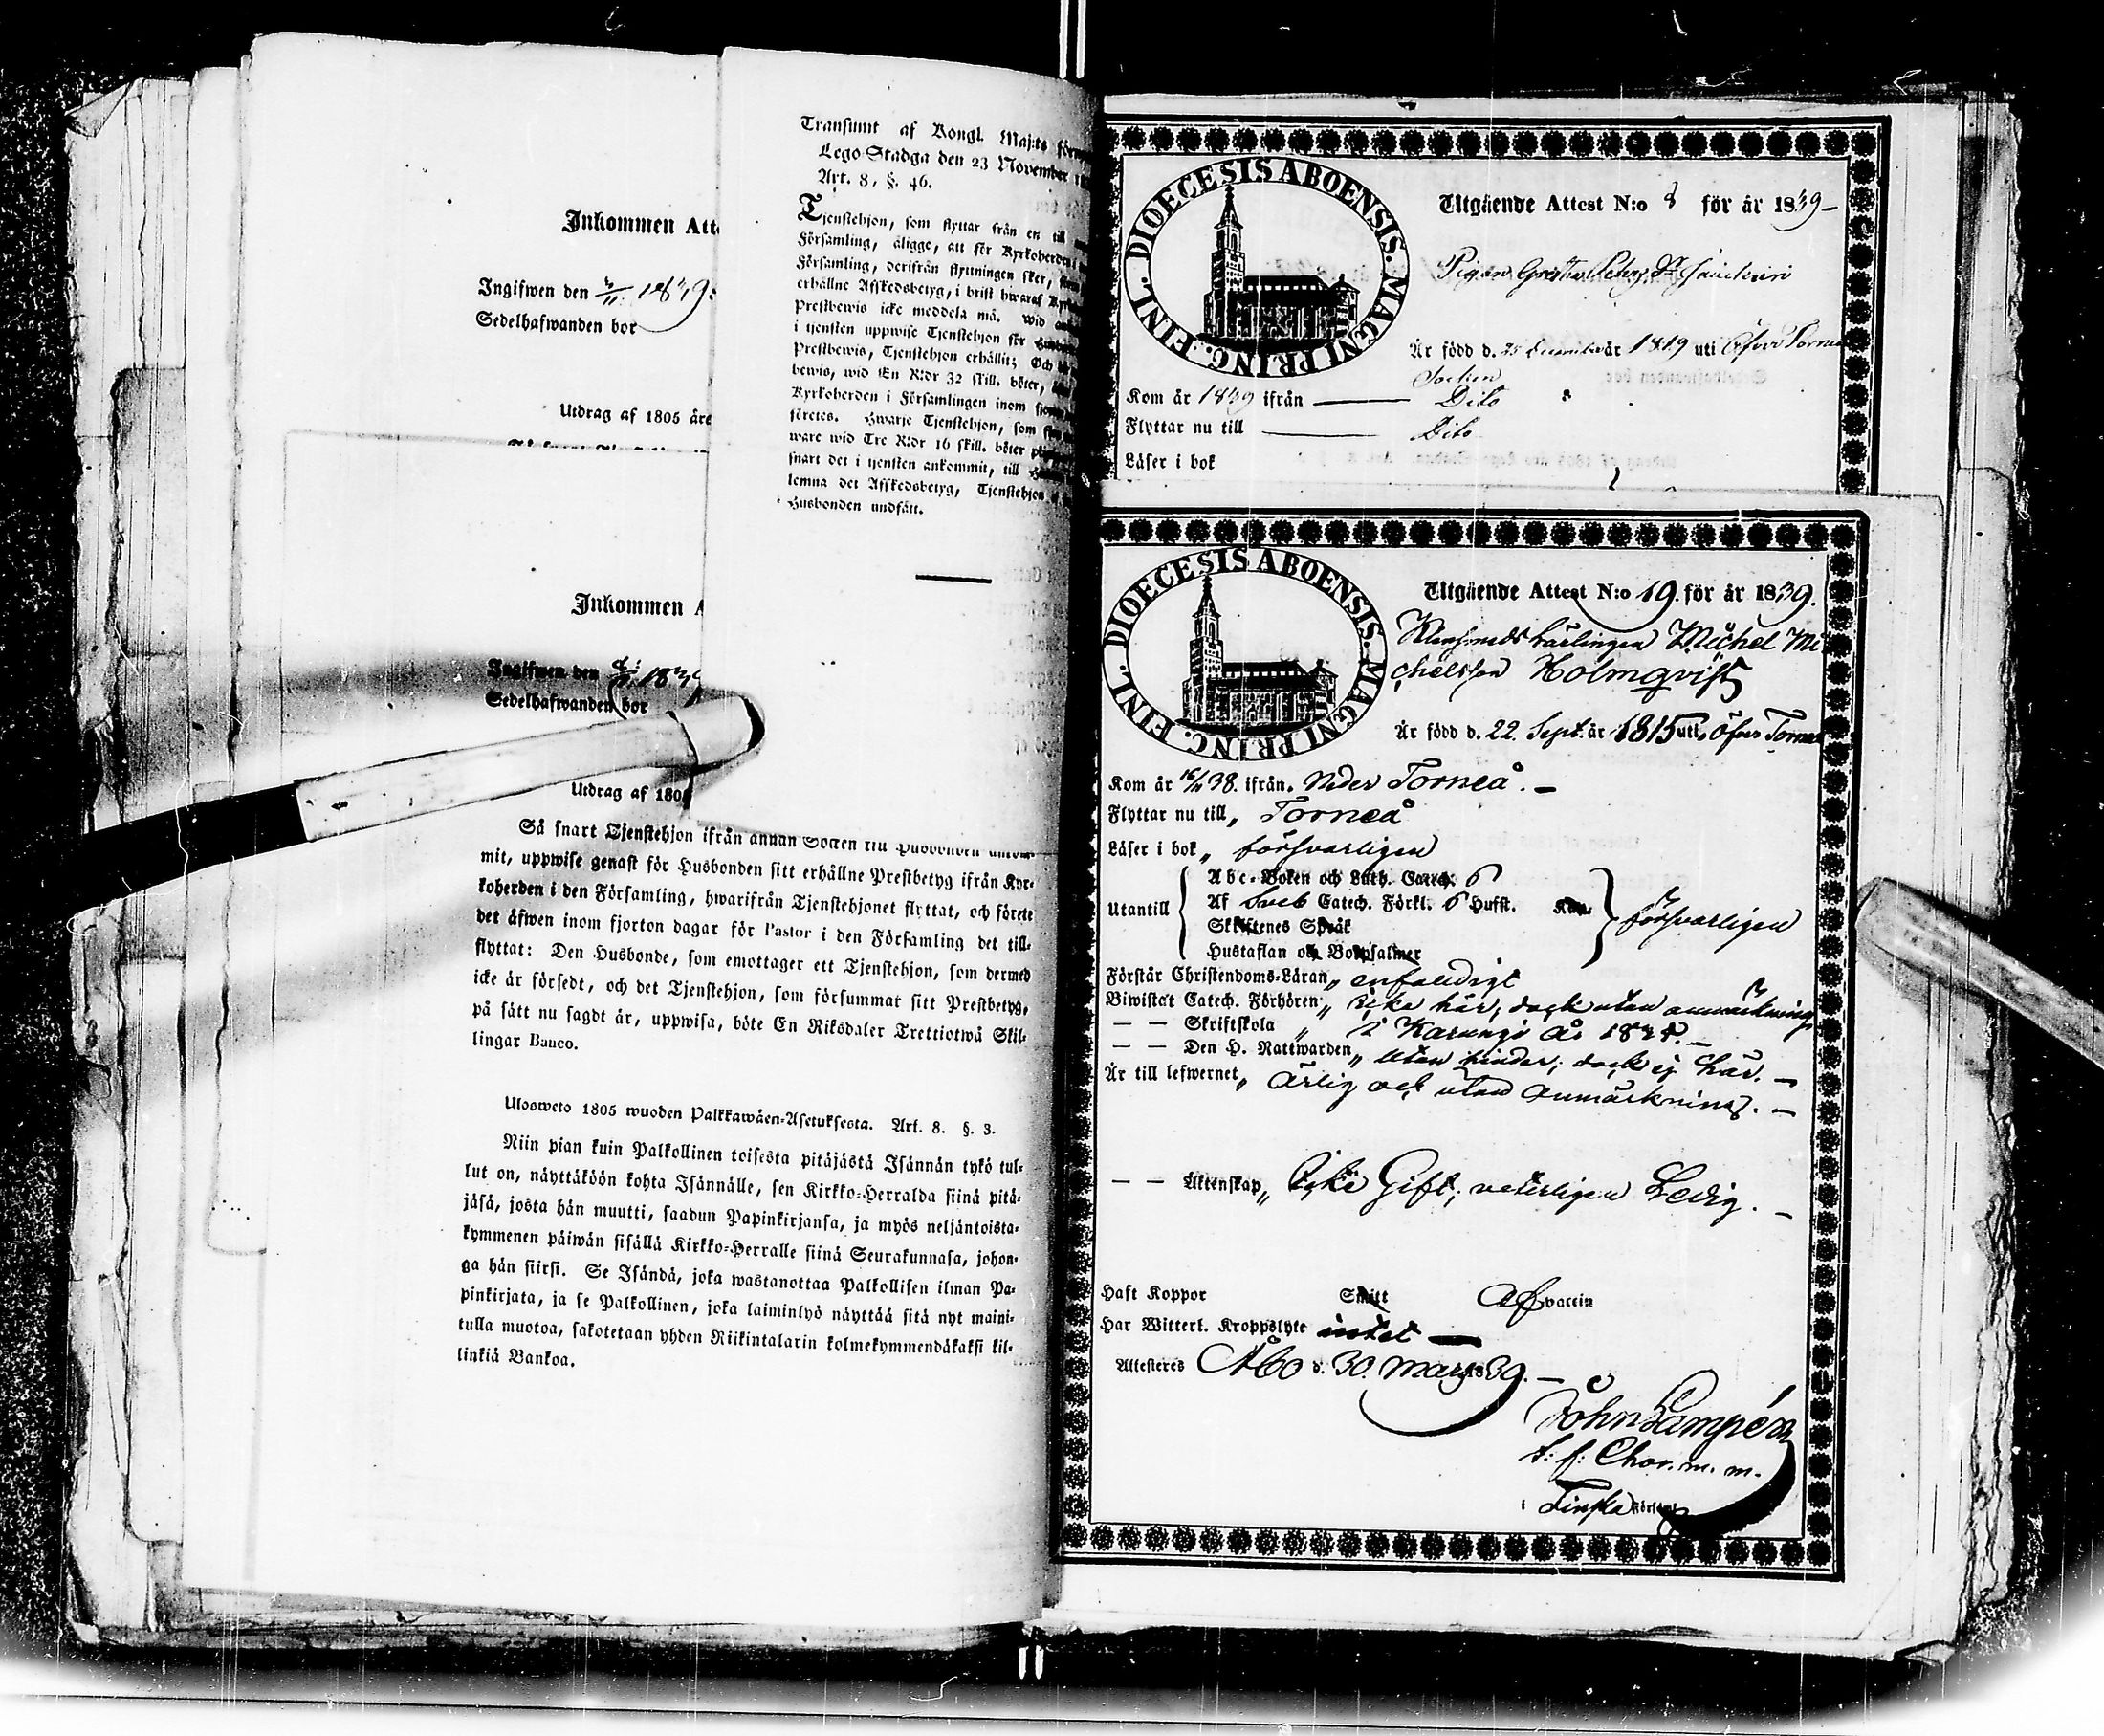 Inkommen Att
Ingifwen den 1839:
Sedelhafwanden bor
Utdrag af 1805 åre
Transumt af Kongl. Maj:ts
Lego-Stadga den 23 November
Art. 8, §. 46.
Tjenstehjon, som flyttar från en till
Församling, åligge, att för Kyrkoherden
Församling, derifrån flyttningen sker,
erhållne Afskedsbetyg, i brist hwaraf
Prestbewis icke meddela må. Wid
i tjensten uppwise Tjenstehjon för
Prestbewis, Tjenstehjon erhållit; Och
bewis, wid En R:dr 32 skill. böter,
Kyrkoherden i Församlingen inom
företes. Hwarje Tjenstehjon, som
ware wid Tre R:dr 16 skill. böter
snart det i tjensten ankommit, till
lemna det Afskedsbetyg, Tjenstehjon
Husbonden undfått.
Inkommen A
Ingifwen den
Sedelhafwanden bor
Utdrag af 180
Så snart Tjenstehjon ifrån annan Socken till Husbonden
mit, uppwise genast för Husbonden sitt erhållne Prestbetyg ifrån Kyr-
koherden i den Församling, hwarifrån Tjenstehjonet flyttat, och förete
det äfwen inom fjorton dagar för Pastor i den Församling det till-
flyttat: Den Husbonde, som emottager ett Tjenstehjon, som dermed
icke är försedt, och det Tjenstehjon, som försummar sitt Prestbetyg,
på sätt nu sagdt är, uppwisa, böte En Riksdaler Trettiotwå Skil-
lingar Banco.
Ulosweto 1805 wuoden Palkkawäen-Asetuksesta. Art. 8. §. 3.
Niin pian kuin Palkollinen toisesta pitäjästä Isännän tykö tul-
lut on, näyttäköön kohta Isännälle, sen Kirkko-Herralda siinä pitä-
jäsä, josta hän muutti, saadun Papinkirjansa, ja myös neljäntoista-
kymmenen päiwän sisällä Kirkko-Herralle siinä Seurakunnasa, johon-
ga hän siirsi. Se Isändä, joka wastanottaa Palkollisen ilman Pa-
pinkirjata, ja se Palkollinen, joka laiminlyö näyttää sitä nyt maini-
tulla muotoa, sakotetaan yhden Riikintalarin kolmekymmendäkaksi kil-
linkiä Bankoa.
DIOECESIS ABOENSIS. MAGNI PRINC. FINL.
Utgående Attest N:o 8 för år 1839
Pigan Greta Peters Dr
Är född d. 25 December år 1819 uti Öfver Torneå
Socken
Kom år 1839 ifrån Dito
Flyttar nu till Dito
Läser i bok
DIOECESIS ABOENSIS. MAGNI PRINC. FINL.
Utgående Attest N:o 19. för år 1839.
Klensmeds Lärlingen Michel Mi
chelsson Holmqvist
Är född d. 22 Sept. år 1815 uti Öfver Torneå
Kom år 16/11 38. ifrån Neder Torneå.
Flyttar nu till, Torneå
Läser i bok, försvarligen
Utantill
Abc-Boken och Luth. Catech. 6
Af Sveb Catech. Förkl. 6 Hufst.
Skriftenes Språk
Hustaflan och Botpsalmer
försvarligen
Förstår Christendoms-Läran, enfaldigt
Biwistat Catech. Förhören, icke här, dock utan anmärkning
— — Skriftskola, i Karungi år
— — Den H. Nattwarden, utan hinder; dock ej här.
Är till lefwernet, ärlig och utan anmärkning.
— — Äktenskap, Icke Gift, veterligen Ledig.
Haft Koppor Smitt Af vaccin
Har Witterl. Kroppslyte intet
Attesteres Åbo d. 30. Mars 1839.
John Lampén
t: f: Chor. m. m.
i Finska Församl